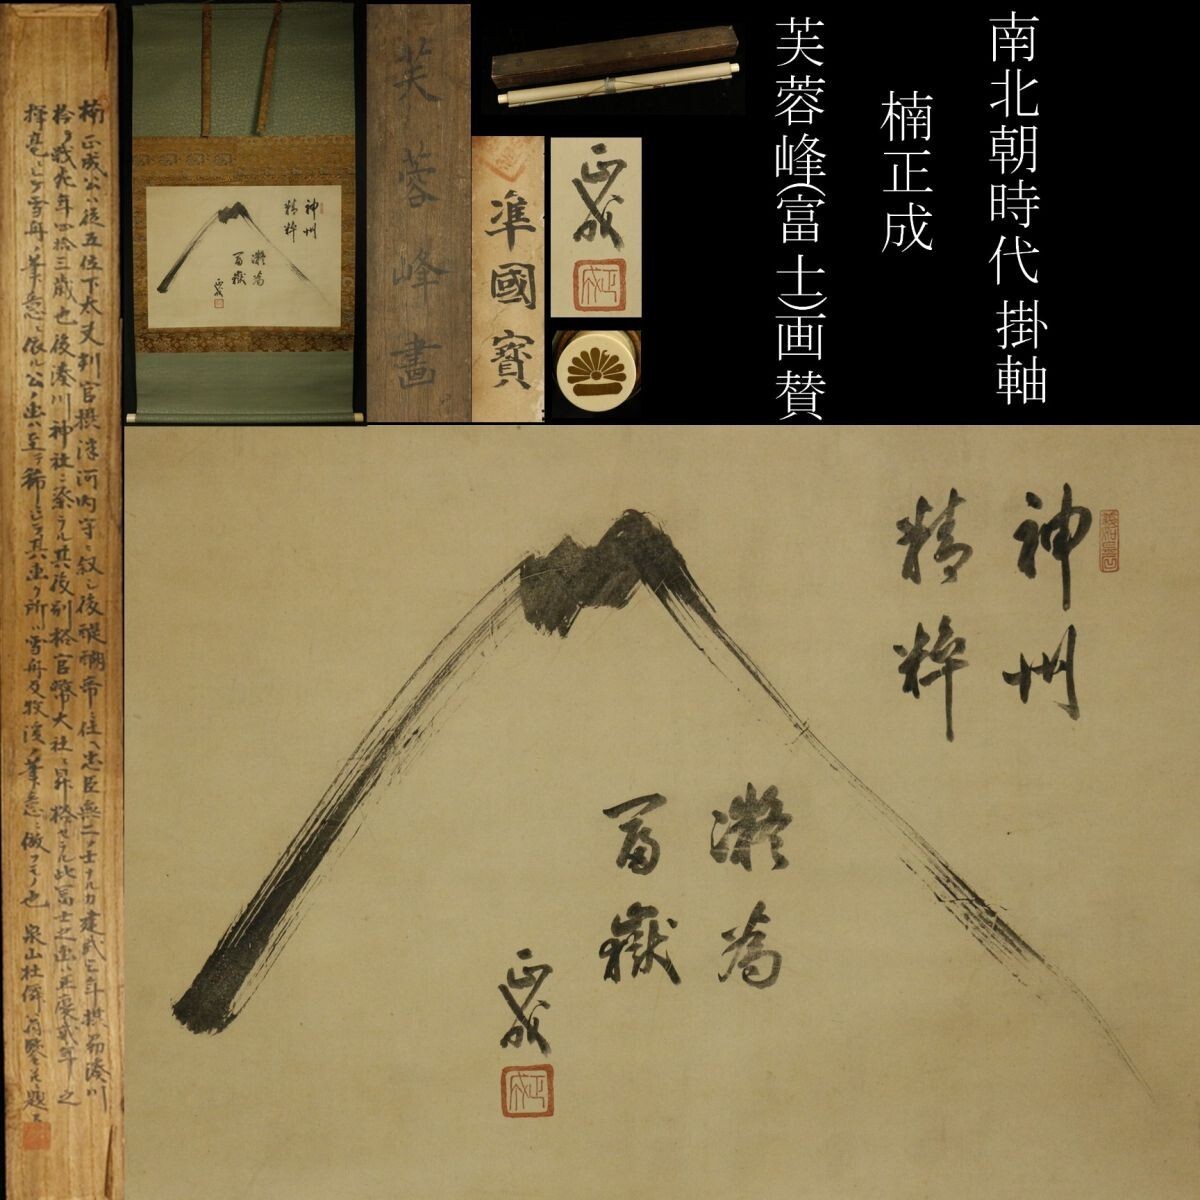 南北朝時代 掛軸
楠正成
芙蓉峰(富士)画賛
正成
正成
凖國寳
芙蓉峰畫
神州
精粹
凝為
冨嶽
正成
正成
神州
精粹
凝為
冨嶽
正成
正成
楠正成公ハ従五位下太夫判官摂津河内守ニ叙シ後醍醐帝ニ仕ヘ忠臣無二ノ士ナルカ建武年摂州湊川
戦死年四拾三歳也後湊川神社ニ祭ラル其後別格官幣大社ニ昇格セラル此冨士之画ハ正慶弐年之
揮毫シテ雪舟ノ筆意ニ依ル公ノ画ハ至テ稀ニシテ其画ク所ハ雪舟及牧渓ノ筆意ニ倣フモノ也 泉山